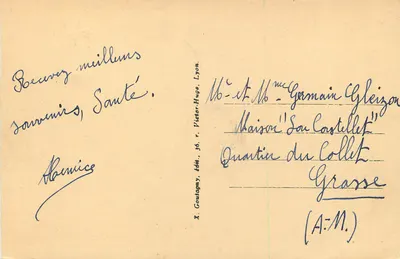 Recevez meilleurs
souvenirs, Santé.
X. Goutagny, édit., 36, r. Victor-Hugo, Lyon.
Mr et Mme Germain Gleizon
Maison "Lou Castellet"
Quartier du Collet
Grasse
(A-M.)